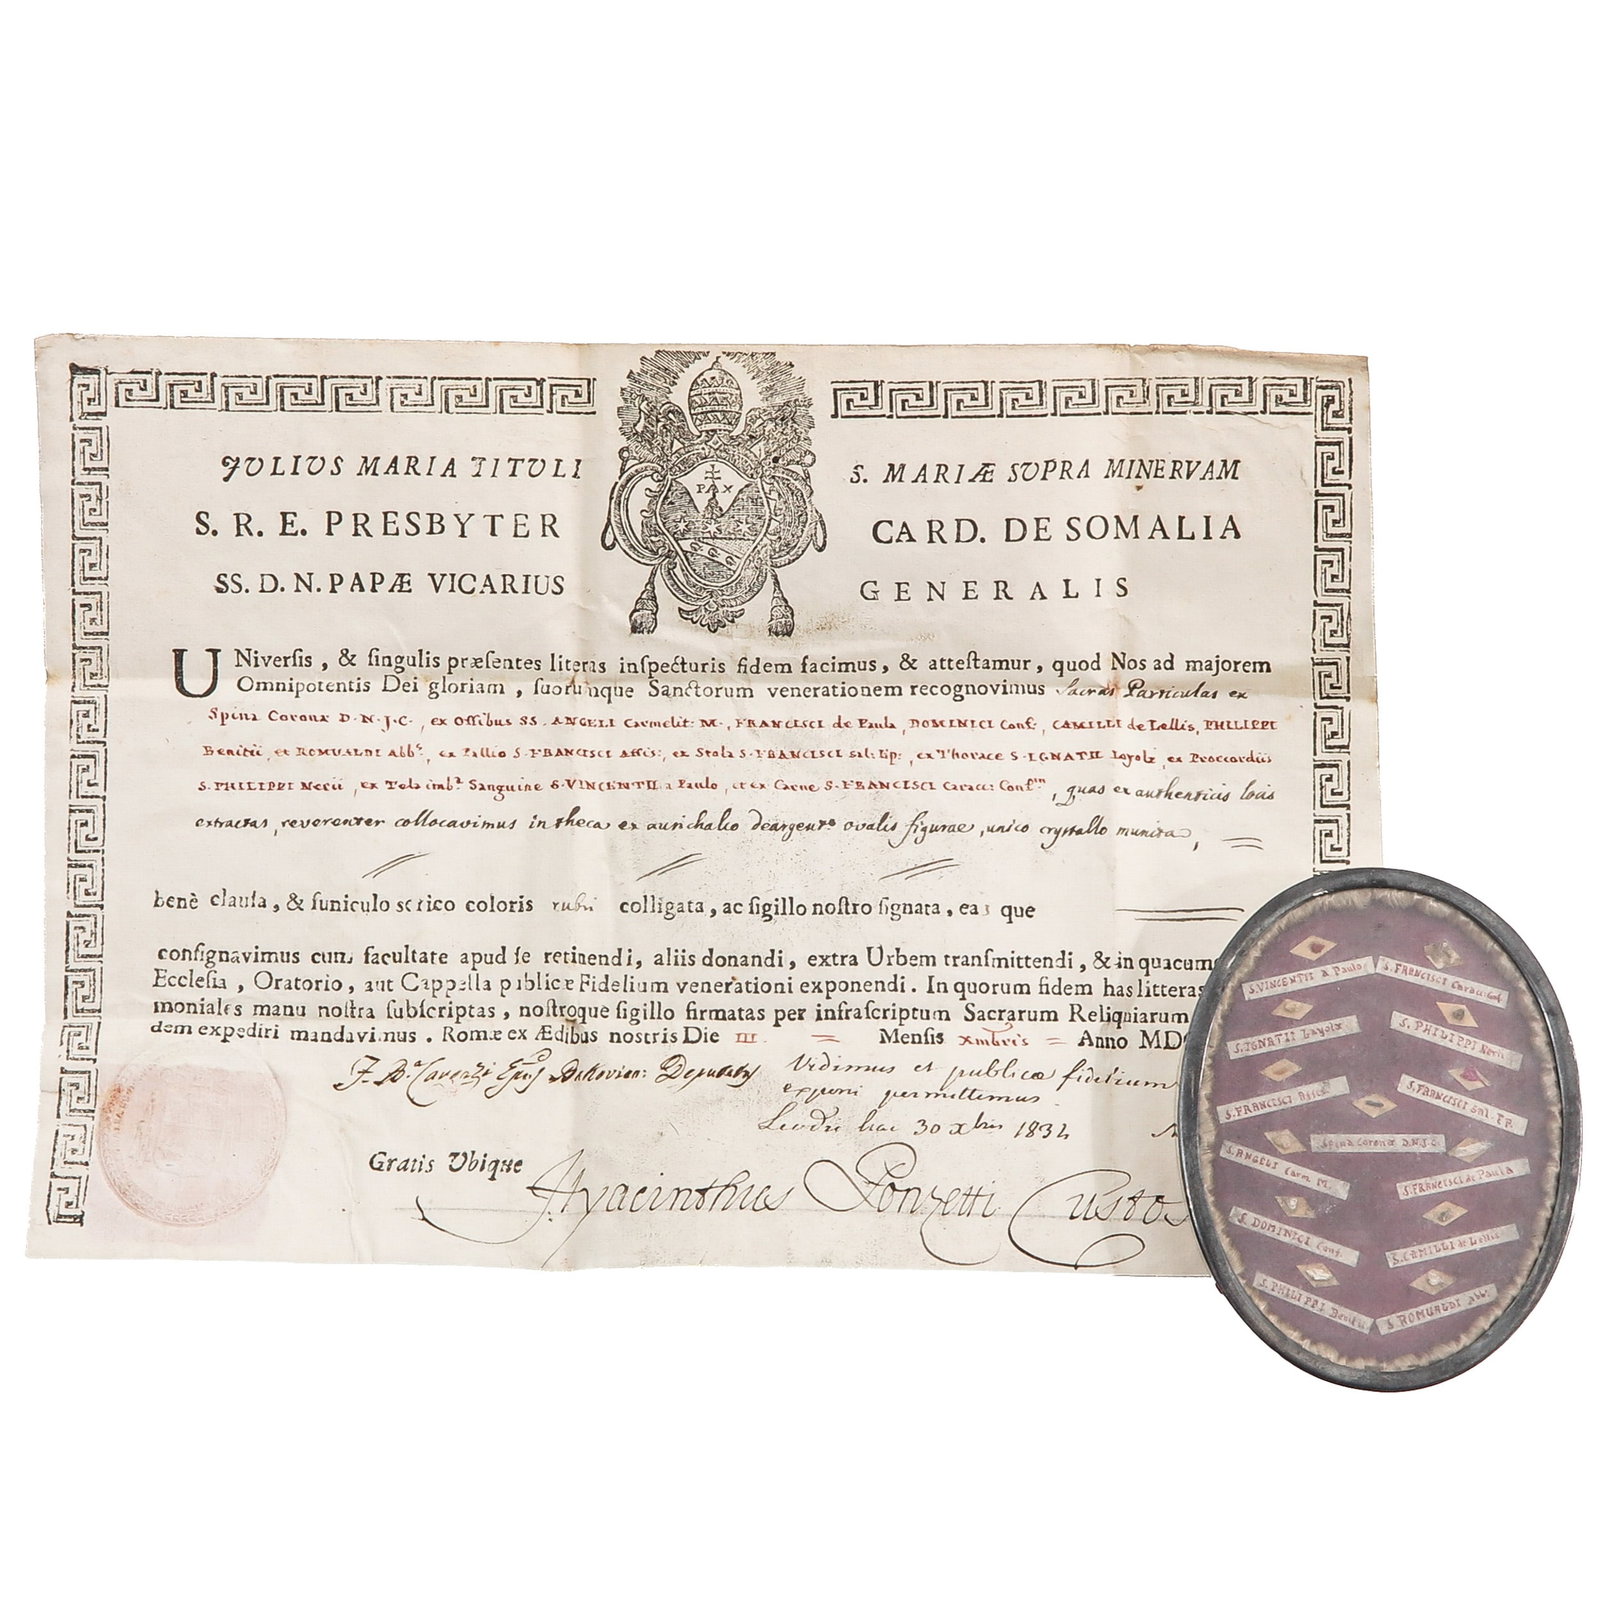 JULIUS MARIA TITULI S. MARIÆ SUPRA MINERVAM
PAX
S. R. E. PRESBYTER CARD. DE SOMALIA
SS. D. N. PAPÆ VICARIUS GENERALIS
UNiversis, & singulis præsentes literas inspecturis fidem facimus, & attestamur, quod Nos ad majorem
Omnipotentis Dei gloriam, suorumque Sanctorum venerationem recognovimus Sacras Particulas ex
Spina Coronæ D.N.J.C., ex Ossibus SS. ANGELI Carmelit: M., FRANCISCI de Paula, DOMINICI Conf:, CAMILLI de Lellis, PHILIPPI
Benitii, et ROMUALDI Abb., ex Pallio S. FRANCISCI Assis:, ex Stola S. FRANCISCI Sal: Ep:, ex Thorace S. IGNATII Loyolæ, ex Præcordiis
S. PHILIPPI Nerii, ex Tela imb. Sanguine S. VINCENTII a Paulo, et ex Carne S. FRANCISCI Carac: Conf., quas ex authenticis locis
extractas, reverenter collocavimus in theca ex aurichalco deargent. ovalis figurae, unico crystallo munita,
benè clausa, & funiculo serico coloris rubri colligata, ac sigillo nostro signata, eas que
consignavimus cum facultate apud se retinendi, aliis donandi, extra Urbem transmittendi, & in quacum
Ecclesia, Oratorio, aut Cappella publicæ Fidelium venerationi exponendi. In quorum fidem has litteras
moniales manu nostra subscriptas, nostroque sigillo firmatas per infrascriptum Sacrarum Reliquiarum
dem expediri mandavimus. Romæ ex Ædibus nostris Die III. Mensis Xmbris Anno MD
Vidimus et publicæ fidelium
exponi permittimus
Leodii hac 30 Xbris 1834
Gratis Ubique
Hyacinthus Ponzetti Custos
S. VINCENTII a Paulo
S. FRANCISCI Carac: Conf.
S. IGNATII Loyolæ
S. PHILIPPI Nerii
S. FRANCISCI Assis.
S. FRANCISCI Sal. EP.
Spina Coronæ D.N.J.C.
S. ANGELI Carm M.
S. FRANCISCI de Paula
S. DOMINICI Conf.
S. CAMILLI de Lellis
S. PHILIPPI Benitii
S. ROMUALDI Abb.